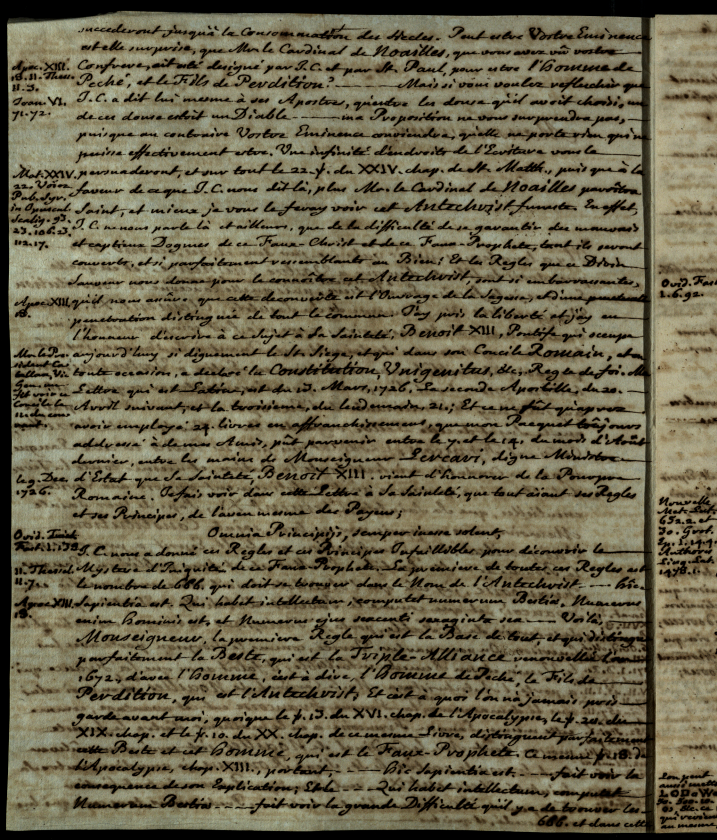 succederont jusqu'à la Consommation des Siecles. Peut estre Vostre Eminence
est elle surprise, que Mr. le Cardinal de Noailles, que vous avez vû vostre
Confrere, ait eté designé par J.C. et par St. Paul, pour estre l'Homme de
Peché, et le Fils de Perdition? Mais si vous voulez reflechir que
J.C. a dit lui mesme à ses Apostres, qu'entre les douse qu'il avoit choisi, un
de ces douse estoit un Diable ma Proposition ne vous surprendra pas,
puisque au contraire Vostre Eminence conviendra, qu'elle ne porte rien qui ne
puisse effectivement estre. Une infinité d'endroits de l'Ecriture vous le
persuaderont, et sur tout le 22. ṽ. du XXIV. chap. de St. Matth., puis que à la
faveur de ce que J.C. nous dit là, plus Mr. le Cardinal de Noailles paroîtra
Saint, et mieux je vous le feray voir cet Antechrist funeste. En effet,
J.C. ne nous parle là et ailleurs, que de la difficulté de se garantir des mauvais
et captieux Dogmes de ce Faux-Christ et de ce Faux-Prophete, tant ils seront
couverts, et si parfaitement ressemblants au Bien! Et les Regles que ce Divin
Sauveur nous donne pour le connoître cet Antechrist, sont si embarrassantes,
qu'il nous assure que cette decouverte est l'Ouvrage de la Sagesse, et d'une
penetration distinguée de tout le commun. J'ay pris la liberté et j'ay eu
l'honneur d'escrire à ce Sujet à Sa Sainteté, Benoit XIII, Pontife qui occupe
aujourd'huy si dignement le St. Siege, et qui dans son Concile Romain, et en
toute occasion, a declaré la Constitution, Unigenitus, &c, Regle de foi. Ma
Lettre, qui est Latine, est du 13. Mars, 1726. La seconde Apostille, du 20.
Avril suivant, et la troisieme, du lendemain, 21.; Et ce ne fût qu'aprez
avoir employé 24. livres en affranchissement, que mon Pacquet toûjours
addressé à de mes Amis, pût parvenir entre le 7. et le 14. du mois d'Août
dernier, entre les mains de Monseigneur Lercari, digne Ministre
d'Estat que Sa Sainteté, Benoit XIII. vient d'honnorer de la Pourpre
Romaine. Je fais voir dans cette Lettre à Sa Sainteté, que tout aiant ses Regles
et ses Principes, de l'aveu mesme des Payens;
Omnia Principijs, semper inesse solent,
J.C. nous a donné ces Regles et ces Principes Infaillibles pour découvrir le
Mystere d'Iniquité de ce Faux-Prophete. La premiere de toutes ces Regles est
le nombre de 666. qui doit se trouver dans le Nom de l'Antechrist Hic
Sapientia est. Qui habet intellectum, computet numerum Bestiæ. Numerus
enim hominis est, et Numerus ejus sexcenti sexaginta sex Voilà,
Monseigneur, la premiere Regle qui est la Base de tout, et qui distingue
parfaitement la Beste, qui est la Triple-Alliance renouvellée
1672., d'avec l'Homme, c'est à dire, l'Homme de Peché, le Fils de
Perdition, qui est l'Antechrist; Et c'est à quoi l'on n'a jamais pris
garde avant moi, quoique le ṽ. 13. du XVI. chap. de l'Apocalypse, le ṽ. 20. du
XIX. chap. et le ṽ. 10. du XX. chap. de ce mesme Livre, distinguent parfaitement
cette Beste et cet Homme, qui est le Faux-Prophete. Ce mesme ṽ. 18. de
l'Apocalypse, chap. XIII., portant, Hic Sapientia est. fait voir la
consequence de son Explication; Et le Qui habet intellectum, computet
Numerum Bestiæ fait voir la grande Difficulté qu'il y a de trouver les
666. et dans cette
Apoc. XIII.
18. II. Thess.
II. 3.
Joan. VI.
71.-72.
Mat. XXIV
22.
Pub. Syr.
Apoc. XIII
18.
Mr. le Pre-
le 9. Dec.
1726.
Ovid.
Fast.
II. Thessal
II. 7.
Apoc. XIII.
18.
Ovid. Fast
Nouvelle
L'on peut
aussi